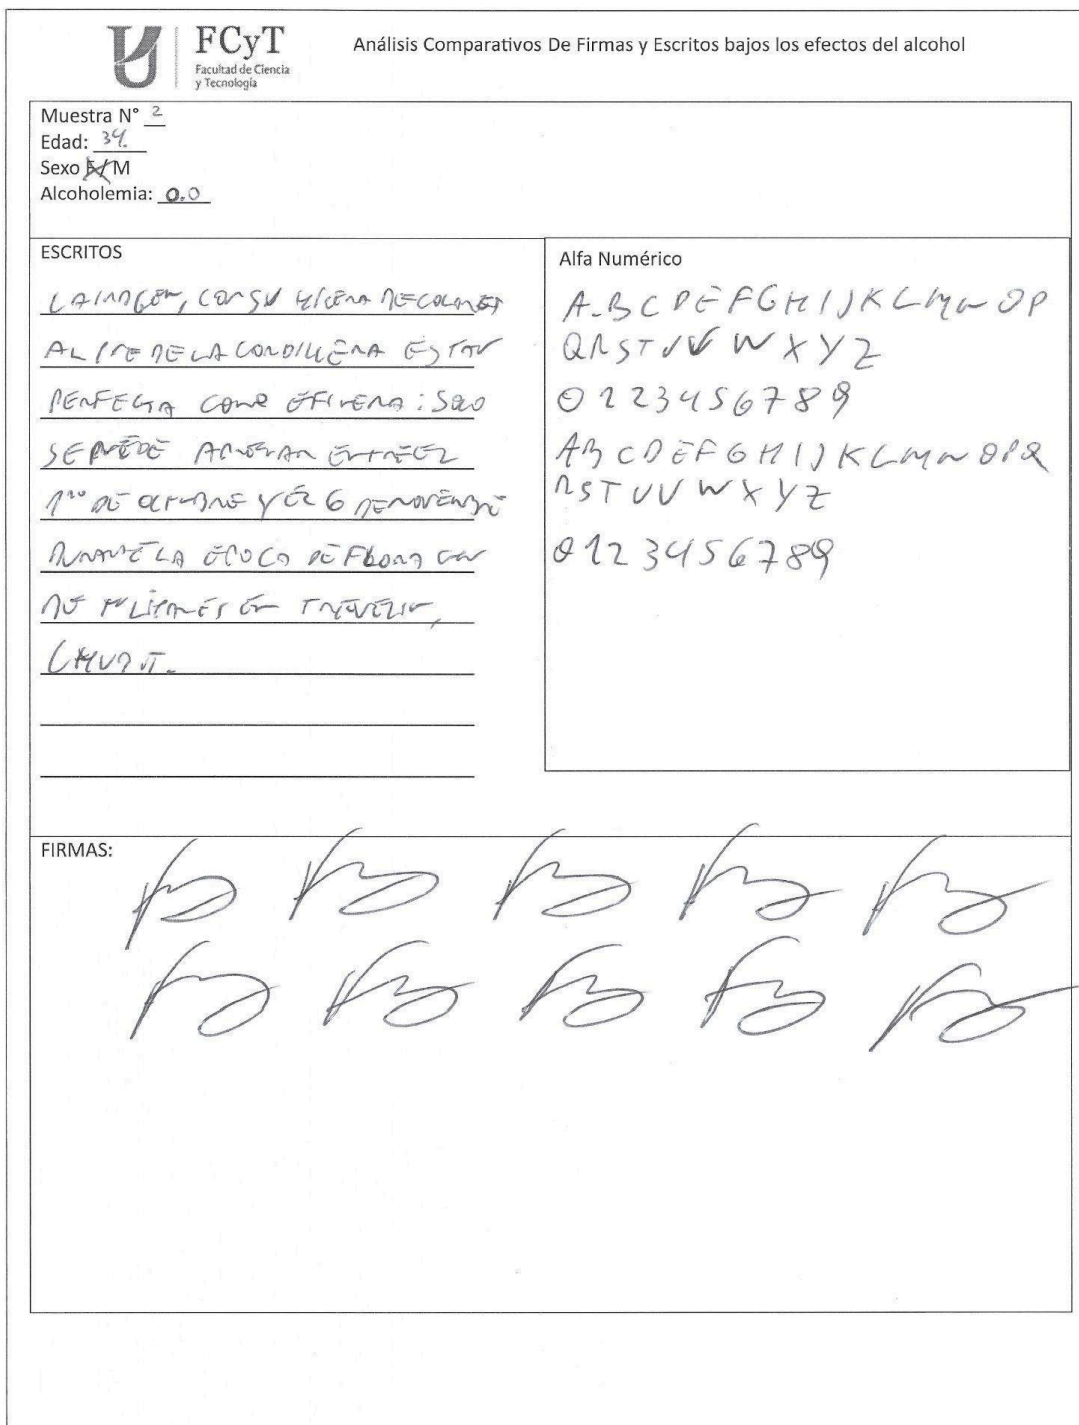 FCyT
Facultad de Ciencia
y Tecnología
Análisis Comparativos De Firmas y Escritos bajos los efectos del alcohol
Muestra N° 2
Edad: 34.
Sexo F/M
Alcoholemia: 0.0
ESCRITOS
LA IMAGEN, CON SU HILERA DE COLORES
AL PIE DE LA CORDILLERA ES TAN
PERFECTA COMO EFIMERA: SOLO
SE PUEDE APRECIAR ENTRE EL
1ro DE OCTUBRE Y EL 6 DE NOVIEMBRE
DURANTE LA EPOCA DE FLORACION
DE TULIPANES EN TREVELIN,
CHUBUT.
Alfa Numérico
A.BCDEFGHIJKLMNOP
QRSTUVWXYZ
0123456789
ABCDEFGHIJKLMNOPQ
RSTUVWXYZ
0123456789
FIRMAS: